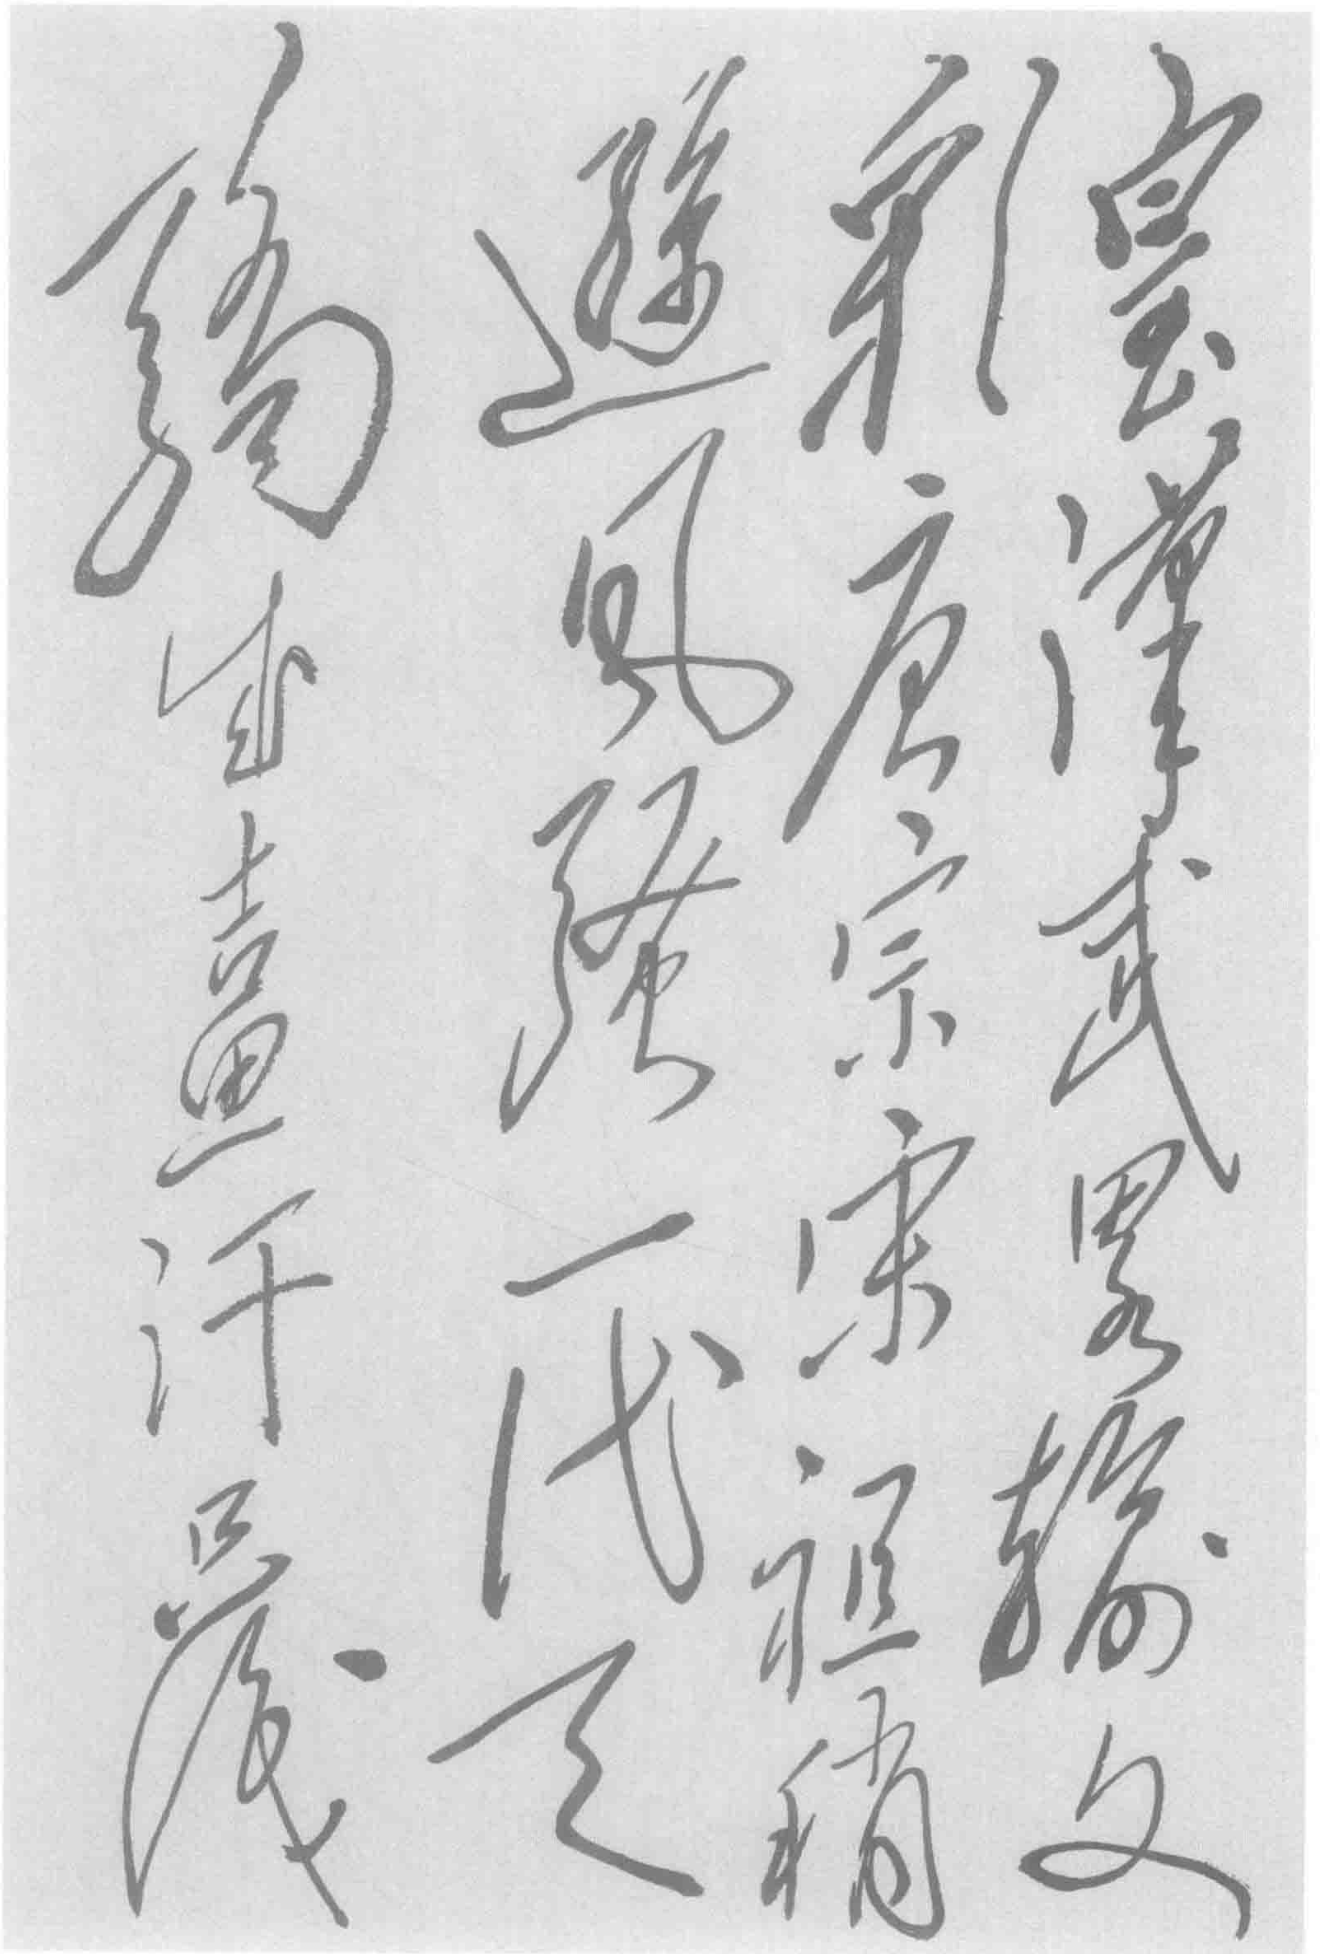 皇漢武畧輸文
彩唐宗宋祖稍
遜風騷一代天
驕成吉思汗只識